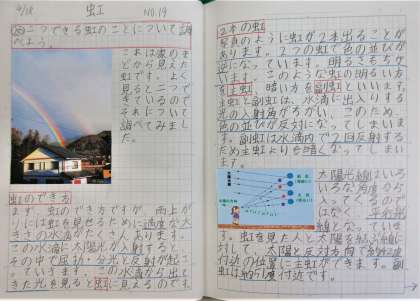 9/18 虹 NO.19
め 二つできる虹のことについて調
べよう。
これは家のま
どから見えた
虹です。よく
見ると二つで
きているので
それについて
調べてみまし
た。
虹のでき方
まず、虹のでき方ですが、雨上が
りには虹を見せるために適度な大
きさの水滴がたくさんあります。
この水滴に太陽光が入射すると、
その中で屈折・分光と反射が起こ
っていきます。この水滴から出て
きた光を見ると虹に見えるのです。
2本の虹
写真のように虹が2本出ることが
あります。2つの虹で色の並びが
逆になっています。明るさもちが
います。このような虹の明るい方
を主虹、暗い方を副虹といいます。
主虹と副虹は、水滴に出入りする
光の入射角がちがい、このため、
色の並びが反対になってしまいま
す。副虹は水滴内で2回反射する
ため主虹よりも暗くなってしまい
ます。
太陽光線はいろ
いろな角度から
入ってくるので
はなく、平行光
線となっていま
す。虹を見た人と太陽を結ぶ線に
対して、太陽と反対方向で約42度
付近の位置に主虹ができます。副
虹は約51度付近です。